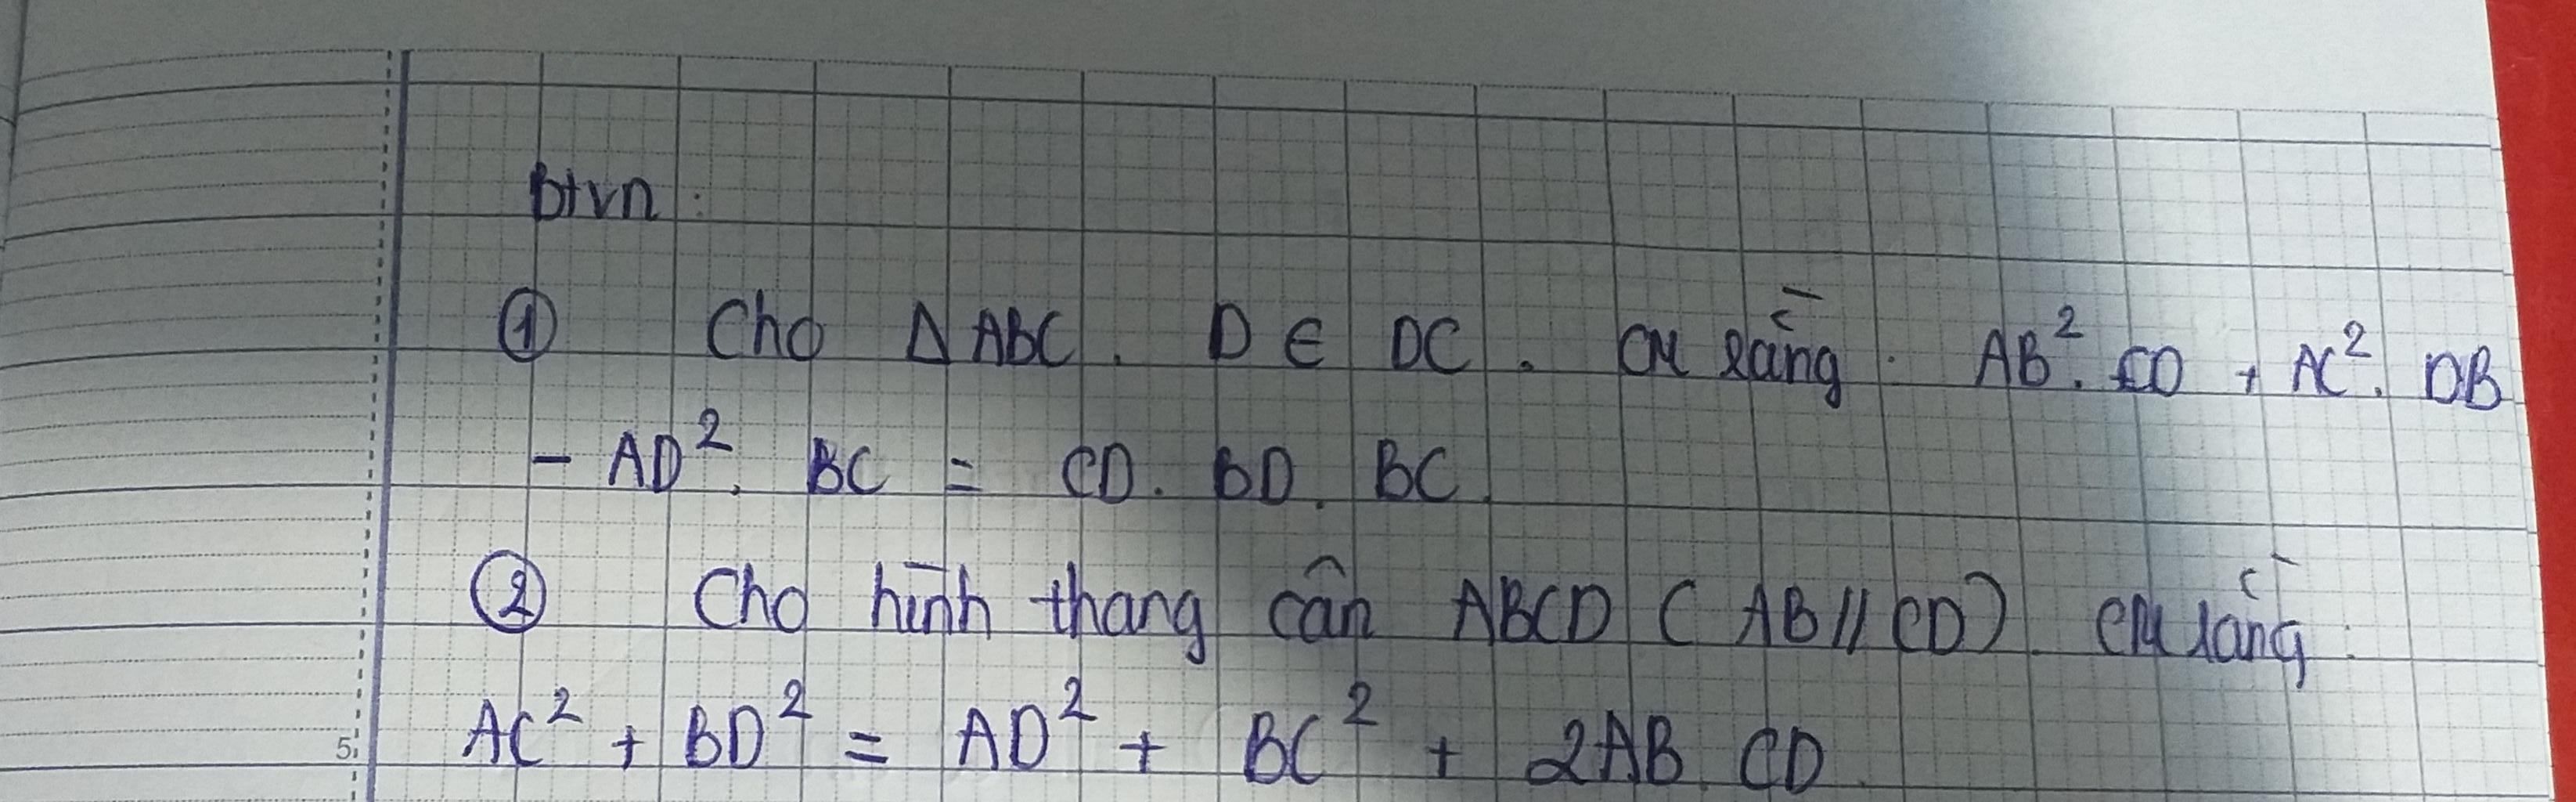 btvn :
① Cho Δ ABC. D ∈ DC. CM rằng. AB². CD + AC². DB
- AD². BC = CD. BD. BC.
② Cho hình thang cân ABCD ( AB // CD). CM rằng :
5 AC² + BD² = AD² + BC² + 2AB. CD.